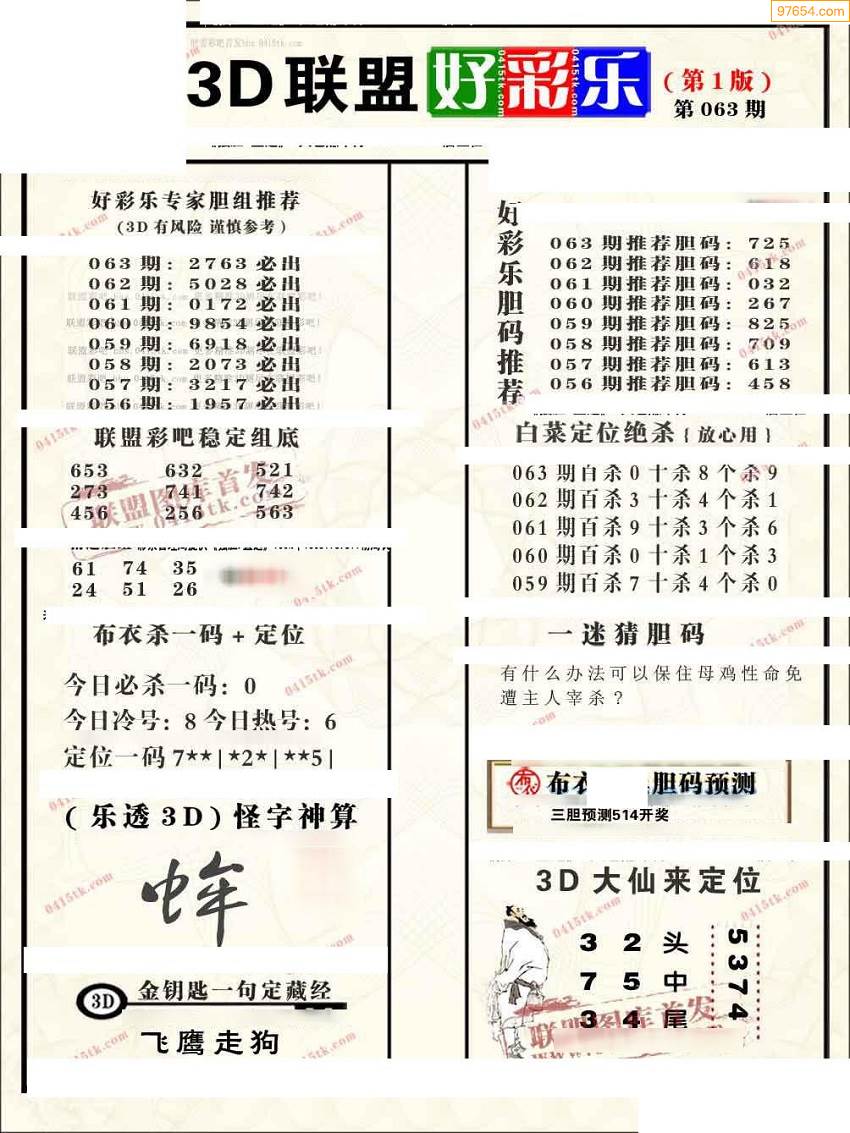 97654.com
3D联盟好彩乐(第1版)
第063期
好彩乐专家胆组推荐
(3D有风险 谨慎参考)
063期: 2763必出
062期: 5028必出
061期: 0172必出
060期: 9854必出
059期: 6918必出
058期: 2073必出
057期: 3217必出
056期: 1957必出
联盟彩吧稳定组底
653 632 521
273 741 742
456 256 563
61 74 35
24 51 26
布衣杀一码+定位
今日必杀一码: 0
今日冷号: 8 今日热号: 6
定位一码7**|*2*|**5|
(乐透3D)怪字神算
3D 金钥匙一句定藏经
飞鹰走狗
好彩乐胆码推荐
063期推荐胆码: 725
062期推荐胆码: 618
061期推荐胆码: 032
060期推荐胆码: 267
059期推荐胆码: 825
058期推荐胆码: 709
057期推荐胆码: 613
056期推荐胆码: 458
白菜定位绝杀{放心用}
063期百杀0十杀8个杀9
062期百杀3十杀4个杀1
061期百杀9十杀3个杀6
060期百杀0十杀1个杀3
059期百杀7十杀4个杀0
一迷猜胆码
有什么办法可以保住母鸡性命免
遭主人宰杀?
布衣 胆码预测
三胆预测514开奖
3D大仙来定位
3 2 头
7 5 中
3 4 尾
5374
联盟图库首发
0415tk.com